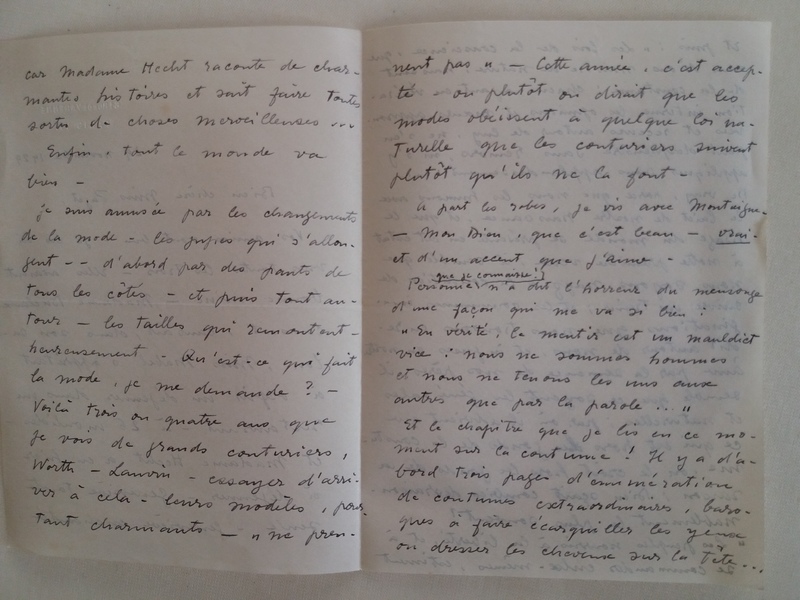 car Madame Hecht raconte de char-
mantes histoires et sait faire toutes
sortes de choses merveilleuses ...
Enfin, tout le monde va
bien -
Je suis amusée par les changements
de la mode - les jupes qui s'allon-
gent - - d'abord par des pants de
tous les côtés - et puis tout au-
tour - les tailles qui remontent -
heureusement - Qu'est-ce qui fait
la mode, je me demande ? -
Voilà trois ou quatre ans que
je vois de grands couturiers,
Worth - Lanvin - essayer d'arri-
ver à cela - leurs modèles, pour-
tant charmants - "ne pren-
nent pas" - Cette année, c'est accep-
té - ou plutôt on dirait que les
modes obéissent à quelque loi na-
turelle que les couturiers suivent
plutôt qu'ils ne la font -
A part les robes, je vis avec Montaigne -
- Mon Dieu, que c'est beau - vrai -
et d'un accent que j'aime -
(que je connaisse !)
Personne n'a dit l'horreur du mensonge
d'une façon qui me va si bien :
"En vérité, le mentir est un mauldict
vice : nous ne sommes hommes
et nous ne tenons les uns aux
autres que par la parole ... "
Et le chapitre que je lis en ce mo-
ment sur la coutume ! Il y a d'a-
bord trois pages d'énumération
de coutumes extraordinaires, baro-
ques à faire écarquiller les yeux
ou dresser les cheveux sur la tête...